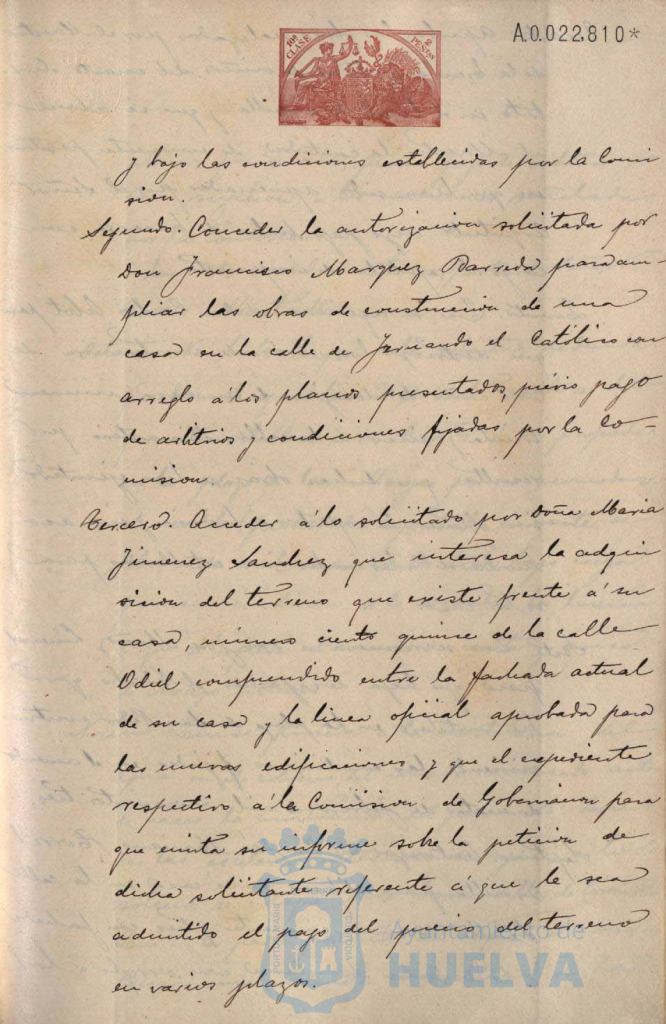 A.0.022,810*
10ª CLASE
2 PESETAS
y bajo las condiciones establecidas por la Comi
sion.
Segundo. Conceder la autorizacion solicitada por
Don Francisco Marquez Barreda para am-
pliar las obras de construccion de una
casa en la calle de Fernando el Católico con
arreglo á los planos presentados, prévio pago
de arbitrios y condiciones fijadas por la Co-
mision.
Tercero. Acceder á lo solicitado por Doña Maria
Jimenez Sandrez que interesa la adqui
sision del terreno que existe frente á su
casa, número ciento quince de la calle
Odiel comprendido entre la fachada actual
de su casa y la linea oficial aprobada para
las nuevas edificaciones y que el expediente
respectivo á la Comision de Gobernacion para
que emita su informe sobre la peticion de
dicha solicitante referente á que le sea
admitido el pago del precio del terreno
en varios plazos.
Ayuntamiento de
HUELVA